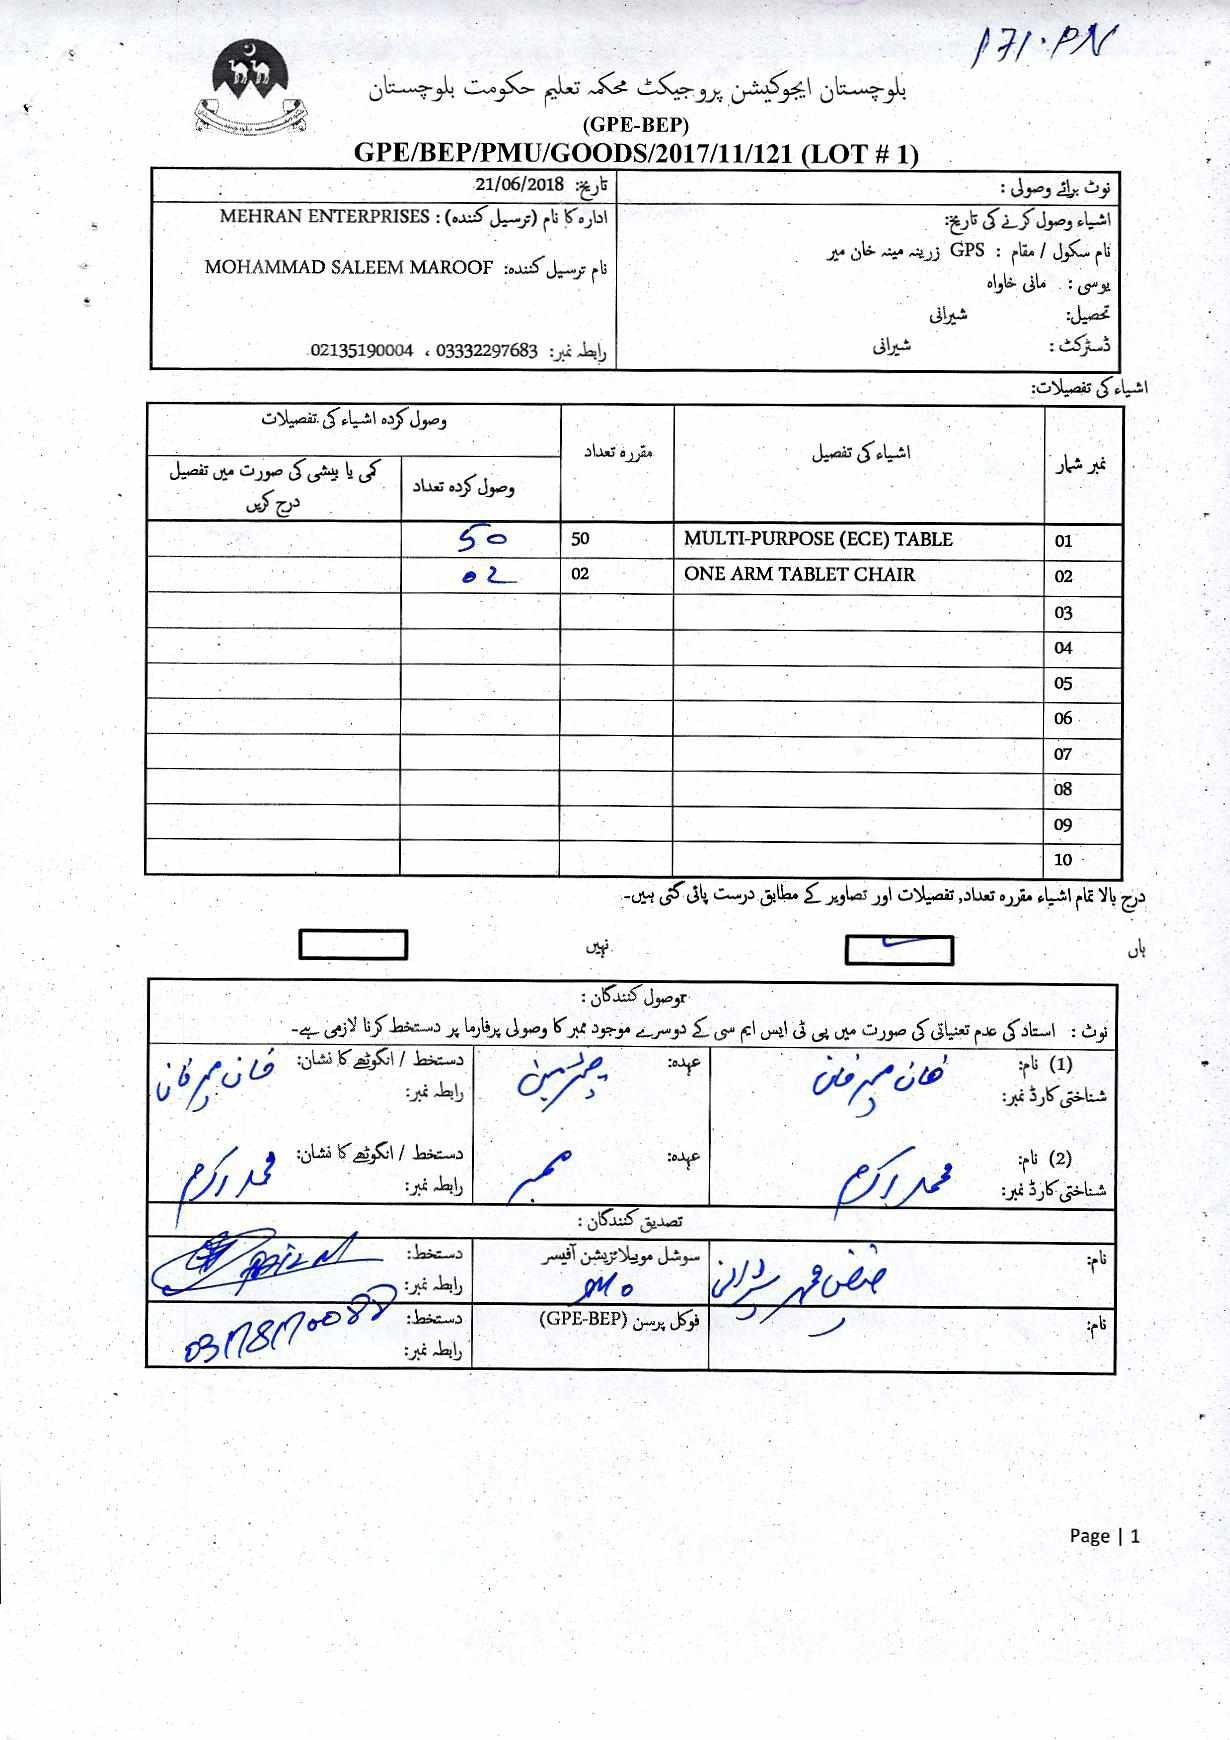 171.PN
بلوچستان ایجوکیشن پروجیکٹ محکمہ تعلیم حکومت بلوچستان
(GPE-BEP)
GPE/BEP/PMU/GOODS/2017/11/121 (LOT # 1)
نوٹ برائے وصولی :
تاریخ: 21/06/2018
اشیاء وصول کرنے کی تاریخ:
ادارہ کا نام (ترسیل کنندہ) : MEHRAN ENTERPRISES
نام سکول / مقام : GPS زرینہ مینہ خان میر
نام ترسیل کنندہ: MOHAMMAD SALEEM MAROOF
یوسی : مانی خاواہ
تحصیل: شیرانی
ڈسٹرکٹ : شیرانی
رابطہ نمبر: 03332297683 ، 02135190004
اشیاء کی تفصیلات:
نمبر شمار
اشیاء کی تفصیل
مقررہ تعداد
وصول کردہ اشیاء کی تفصیلات
وصول کردہ تعداد
کمی یا بیشی کی صورت میں تفصیل درج کریں
01 MULTI-PURPOSE (ECE) TABLE 50 50
02 ONE ARM TABLET CHAIR 02 02
03
04
05
06
07
08
09
10
درج بالا تمام اشیاء مقررہ تعداد, تفصیلات اور تصاویر کے مطابق درست پائی گئی ہیں۔
ہاں
نہیں
وصول کنندگان :
نوٹ : استاد کی عدم تعیناتی کی صورت میں پی ٹی ایس ایم سی کے دوسرے موجود ممبر کا وصولی پرفارما پر دستخط کرنا لازمی ہے۔
(1) نام: خان میر خان
عہدہ: چیئرمین
دستخط / انگوٹھے کا نشان: خان میر خان
شناختی کارڈ نمبر:
رابطہ نمبر:
(2) نام: محمد اکرم
عہدہ: ممبر
دستخط / انگوٹھے کا نشان: محمد اکرم
شناختی کارڈ نمبر:
رابطہ نمبر:
تصدیق کنندگان :
نام:
شیرانی
سوشل موبیلائزیشن آفیسر
دستخط:
رابطہ نمبر:
نام:
فوکل پرسن (GPE-BEP)
دستخط:
رابطہ نمبر:
Page | 1